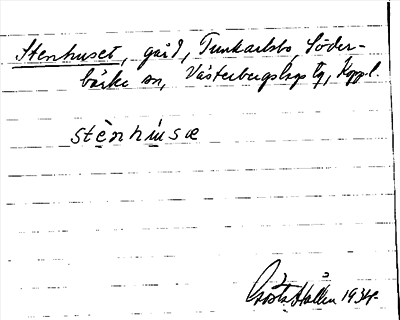 Stenhuset, gård, Tunkarlsbo, Söder-
bärke sn, Västerbergslags tg, Koppl.
stènhúsæ
Gösta Hallén 1934.